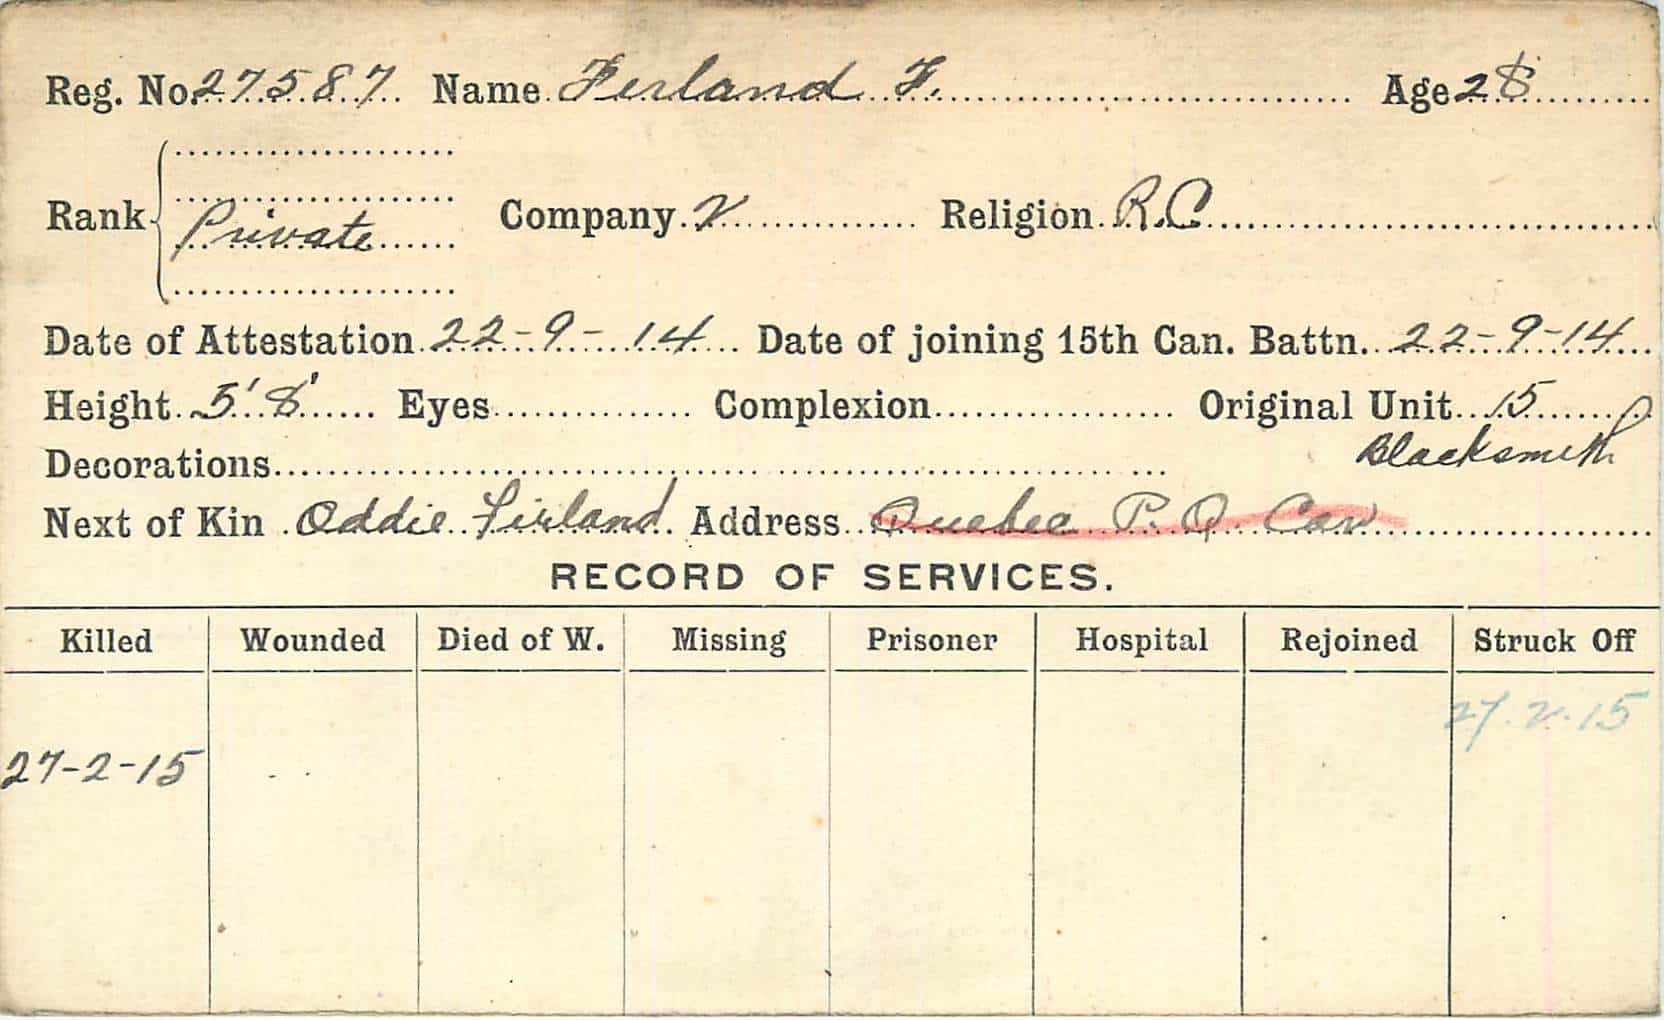 Reg. No. 27587 Name Ferland F. Age 28
Rank Private Company V Religion R.C.
Date of Attestation 22-9-14 Date of joining 15th Can. Battn. 22-9-14
Height 5' 8' Eyes Complexion Original Unit 15
Decorations Blacksmith
Next of Kin Oddie Firland Address Quebec P.Q. Can
RECORD OF SERVICES.
Killed Wounded Died of W. Missing Prisoner Hospital Rejoined Struck Off
27.2.15
27-2-15